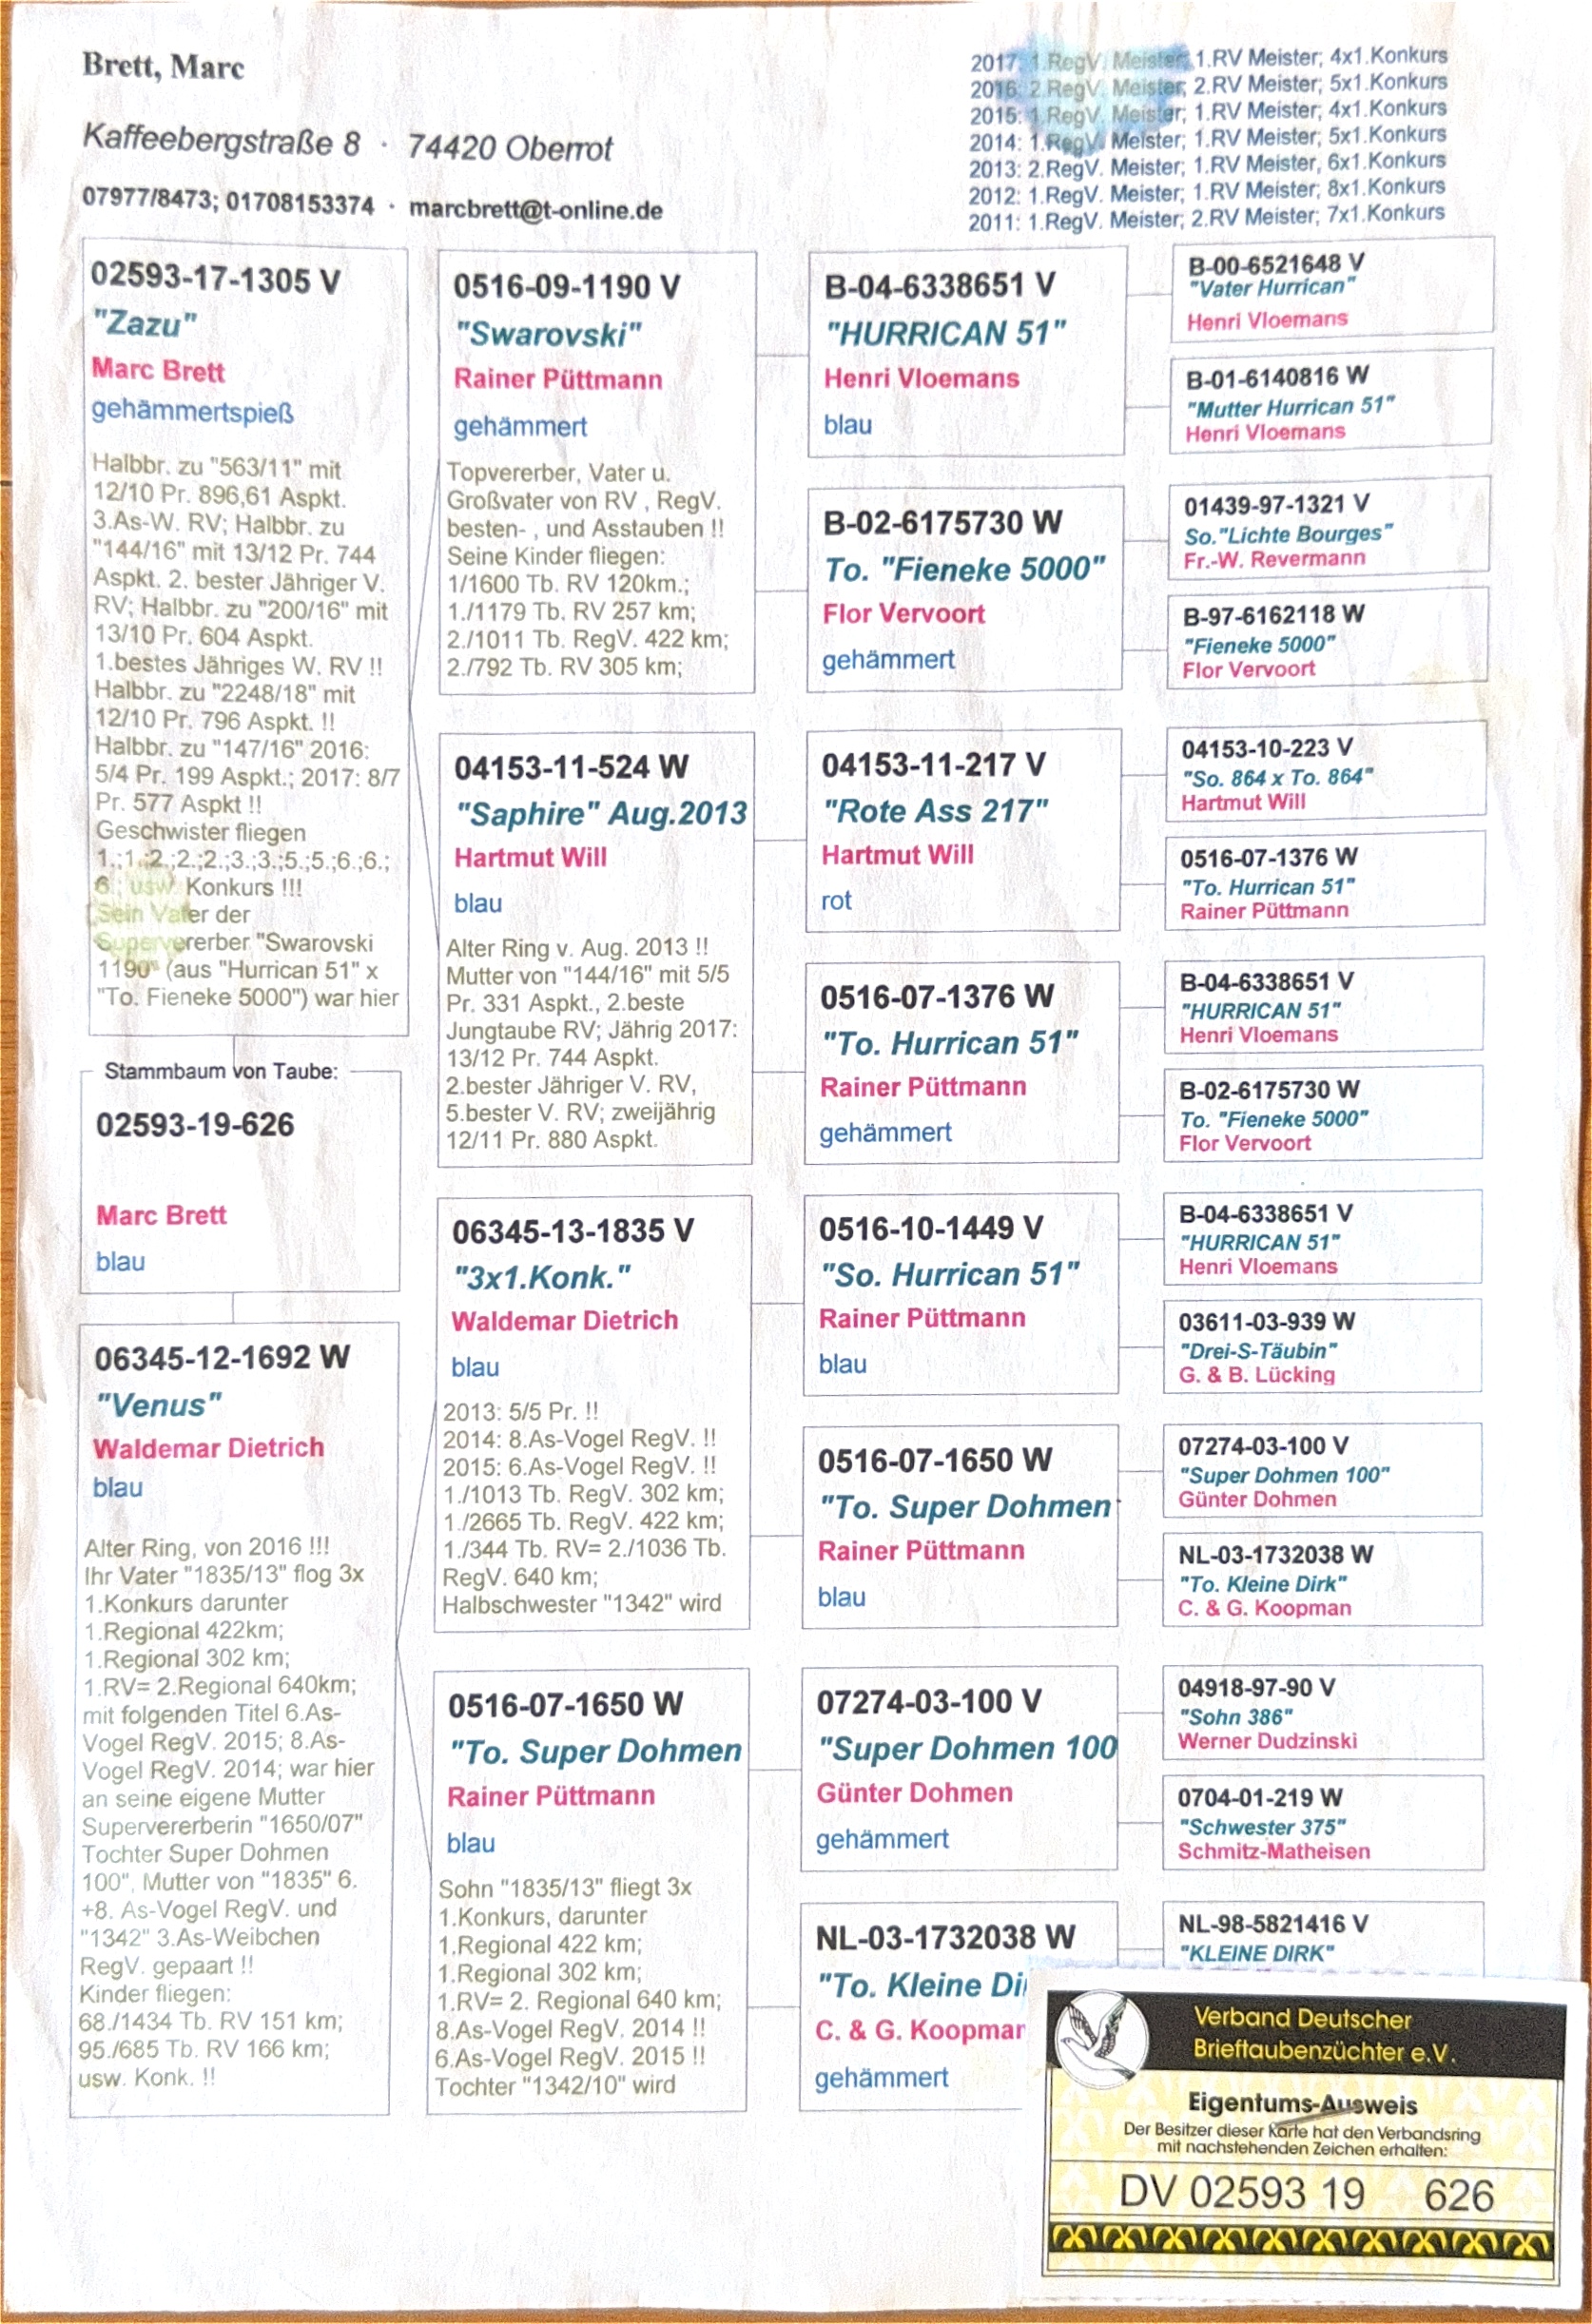 Brett, Marc
Kaffeebergstraße 8 · 74420 Oberrot
07977/8473; 01708153374 · marcbrett@t-online.de
2017: 1.RegV. Meister; 1.RV Meister; 4x1.Konkurs
2016: 2.RegV. Meister; 2.RV Meister; 5x1.Konkurs
2015: 1.RegV. Meister; 1.RV Meister; 4x1.Konkurs
2014: 1.RegV. Meister; 1.RV Meister; 5x1.Konkurs
2013: 2.RegV. Meister; 1.RV Meister, 6x1.Konkurs
2012: 1.RegV. Meister; 1.RV Meister; 8x1.Konkurs
2011: 1.RegV. Meister; 2.RV Meister; 7x1.Konkurs
02593-17-1305 V
"Zazu"
Marc Brett
gehämmertspieß
Halbbr. zu "563/11" mit
12/10 Pr. 896,61 Aspkt.
3.As-W. RV; Halbbr. zu
"144/16" mit 13/12 Pr. 744
Aspkt. 2. bester Jähriger V.
RV; Halbbr. zu "200/16" mit
13/10 Pr. 604 Aspkt.
1.bestes Jähriges W. RV !!
Halbbr. zu "2248/18" mit
12/10 Pr. 796 Aspkt. !!
Halbbr. zu "147/16" 2016:
5/4 Pr. 199 Aspkt.; 2017: 8/7
Pr. 577 Aspkt !!
Geschwister fliegen
1.;1.;2.;2.;2.;3.;3.;5.;5.;6.;6.;
6.; usw. Konkurs !!!
Sein Vater der
Supervererber "Swarovski
1190" (aus "Hurrican 51" x
"To. Fieneke 5000") war hier
Stammbaum von Taube:
02593-19-626
Marc Brett
blau
06345-12-1692 W
"Venus"
Waldemar Dietrich
blau
Alter Ring, von 2016 !!!
Ihr Vater "1835/13" flog 3x
1.Konkurs darunter
1.Regional 422km;
1.Regional 302 km;
1.RV= 2.Regional 640km;
mit folgenden Titel 6.As-
Vogel RegV. 2015; 8.As-
Vogel RegV. 2014; war hier
an seine eigene Mutter
Supervererberin "1650/07"
Tochter Super Dohmen
100", Mutter von "1835" 6.
+8. As-Vogel RegV. und
"1342" 3.As-Weibchen
RegV. gepaart !!
Kinder fliegen:
68./1434 Tb. RV 151 km;
95./685 Tb. RV 166 km;
usw. Konk. !!
0516-09-1190 V
"Swarovski"
Rainer Püttmann
gehämmert
Topvererber, Vater u.
Großvater von RV , RegV.
besten- , und Asstauben !!
Seine Kinder fliegen:
1/1600 Tb. RV 120km.;
1./1179 Tb. RV 257 km;
2./1011 Tb. RegV. 422 km;
2./792 Tb. RV 305 km;
04153-11-524 W
"Saphire" Aug.2013
Hartmut Will
blau
Alter Ring v. Aug. 2013 !!
Mutter von "144/16" mit 5/5
Pr. 331 Aspkt., 2.beste
Jungtaube RV; Jährig 2017:
13/12 Pr. 744 Aspkt.
2.bester Jähriger V. RV,
5.bester V. RV; zweijährig
12/11 Pr. 880 Aspkt.
06345-13-1835 V
"3x1.Konk."
Waldemar Dietrich
blau
2013: 5/5 Pr. !!
2014: 8.As-Vogel RegV. !!
2015: 6.As-Vogel RegV. !!
1./1013 Tb. RegV. 302 km;
1./2665 Tb. RegV. 422 km;
1./344 Tb. RV= 2./1036 Tb.
RegV. 640 km;
Halbschwester "1342" wird
0516-07-1650 W
"To. Super Dohmen
Rainer Püttmann
blau
Sohn "1835/13" fliegt 3x
1.Konkurs, darunter
1.Regional 422 km;
1.Regional 302 km;
1.RV= 2. Regional 640 km;
8.As-Vogel RegV. 2014 !!
6.As-Vogel RegV. 2015 !!
Tochter "1342/10" wird
B-04-6338651 V
"HURRICAN 51"
Henri Vloemans
blau
B-02-6175730 W
To. "Fieneke 5000"
Flor Vervoort
gehämmert
04153-11-217 V
"Rote Ass 217"
Hartmut Will
rot
0516-07-1376 W
"To. Hurrican 51"
Rainer Püttmann
gehämmert
0516-10-1449 V
"So. Hurrican 51"
Rainer Püttmann
blau
0516-07-1650 W
"To. Super Dohmen
Rainer Püttmann
blau
07274-03-100 V
"Super Dohmen 100
Günter Dohmen
gehämmert
NL-03-1732038 W
"To. Kleine Di
C. & G. Koopman
gehämmert
B-00-6521648 V
"Vater Hurrican"
Henri Vloemans
B-01-6140816 W
"Mutter Hurrican 51"
Henri Vloemans
01439-97-1321 V
So."Lichte Bourges"
Fr.-W. Revermann
B-97-6162118 W
"Fieneke 5000"
Flor Vervoort
04153-10-223 V
"So. 864 x To. 864"
Hartmut Will
0516-07-1376 W
"To. Hurrican 51"
Rainer Püttmann
B-04-6338651 V
"HURRICAN 51"
Henri Vloemans
B-02-6175730 W
To. "Fieneke 5000"
Flor Vervoort
B-04-6338651 V
"HURRICAN 51"
Henri Vloemans
03611-03-939 W
"Drei-S-Täubin"
G. & B. Lücking
07274-03-100 V
"Super Dohmen 100"
Günter Dohmen
NL-03-1732038 W
"To. Kleine Dirk"
C. & G. Koopman
04918-97-90 V
"Sohn 386"
Werner Dudzinski
0704-01-219 W
"Schwester 375"
Schmitz-Matheisen
NL-98-5821416 V
"KLEINE DIRK"
Verband Deutscher
Brieftaubenzüchter e.V.
Eigentums-Ausweis
Der Besitzer dieser Karte hat den Verbandsring
mit nachstehenden Zeichen erhalten:
DV 02593 19 626